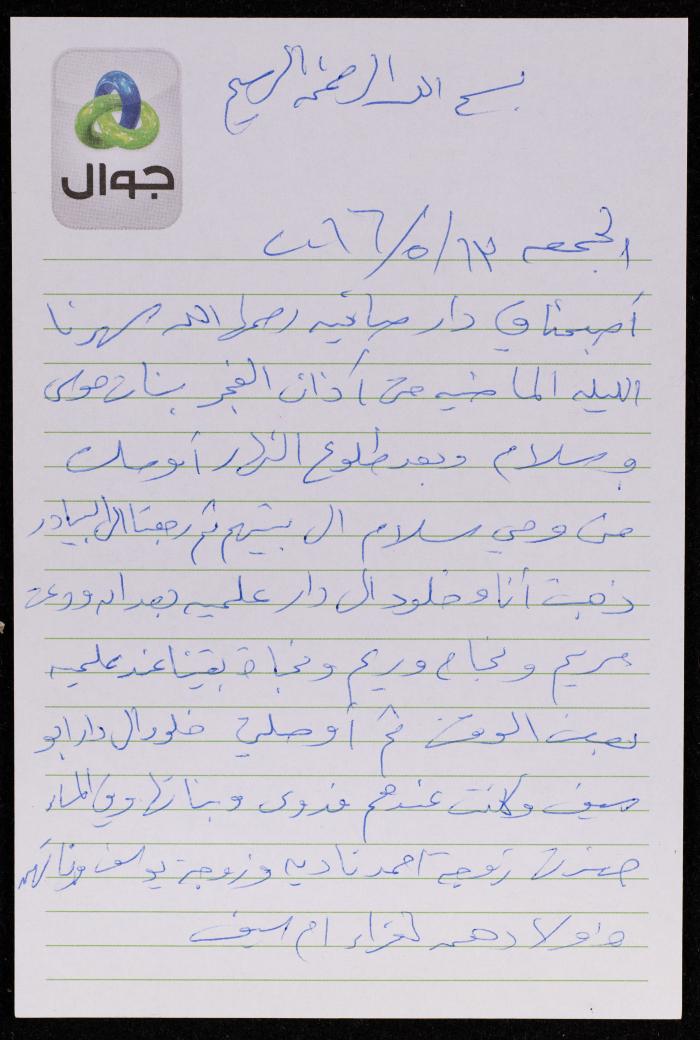 جوال
بسم الله الرحمن الرحيم
الجمعه ١٣/٥/٢٠١٦
أصبحنا في دار صافيه رحمها الله سهرنا
الليله الماضيه حتى أذان الفجر بنات موسى
وسلام وبعد طلوع النهار أوصلت
من وحي سلام ال بيتهم ثم رجعنا ال البيادر
ذهبت أنا وخلود ال دار علميه بعد ان ودعت
مريم ونجاح وريم ونجاة بقينا عند علميه
بعض الوقت ثم أوصلتني خلود ال دار ابو
سيف وكانت عندهم فدوى وبناتها وفي المساء
حضرت زوجة احمد ناديه وزوجة يوسف وبناتهم
واولادهم لعزاء ام سيف